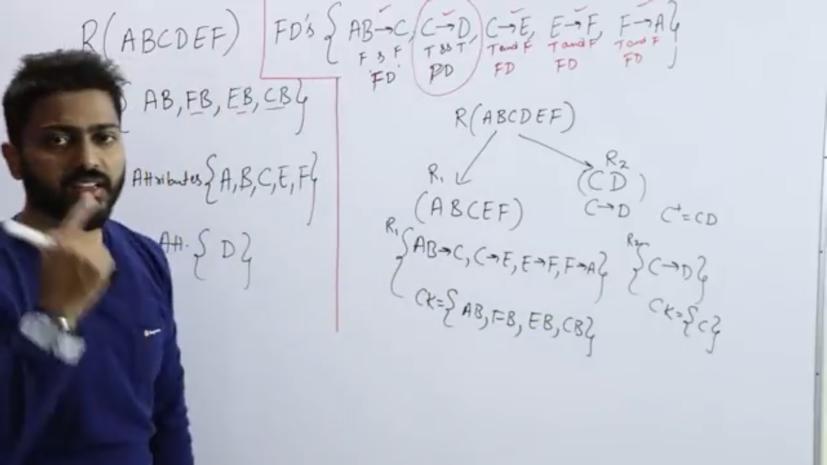 R(ABCDEF)
FD's { AB→C, C→D, C→E, E→F, F→A}
F & F T && T T and F T and F T and F
'FD' PD FD FD FD
AB, FB, EB, CB}
Attributes {A,B,C,E,F}
Att. { D }
R(ABCDEF)
R1 R2
(ABCEF) (CD)
C→D C+=CD
R1 {AB→C, C→E, E→F, F→A} R2 {C→D}
CK={AB, FB, EB, CB} CK={C}